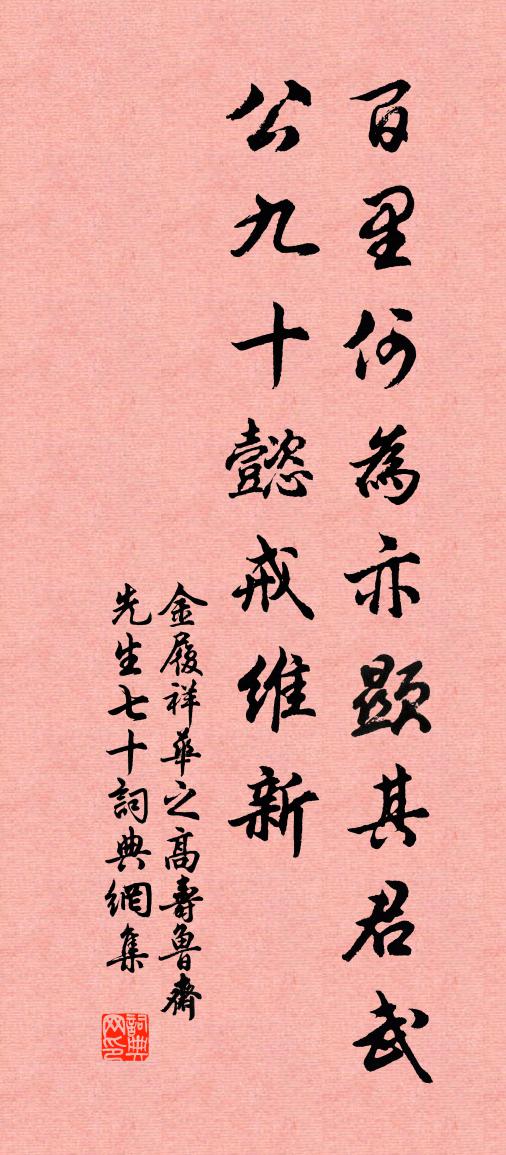 百里何為亦顯其君武
公九十懿戒維新
金履祥華之高壽魯齋
先生七十詞典網集
詞典
网印